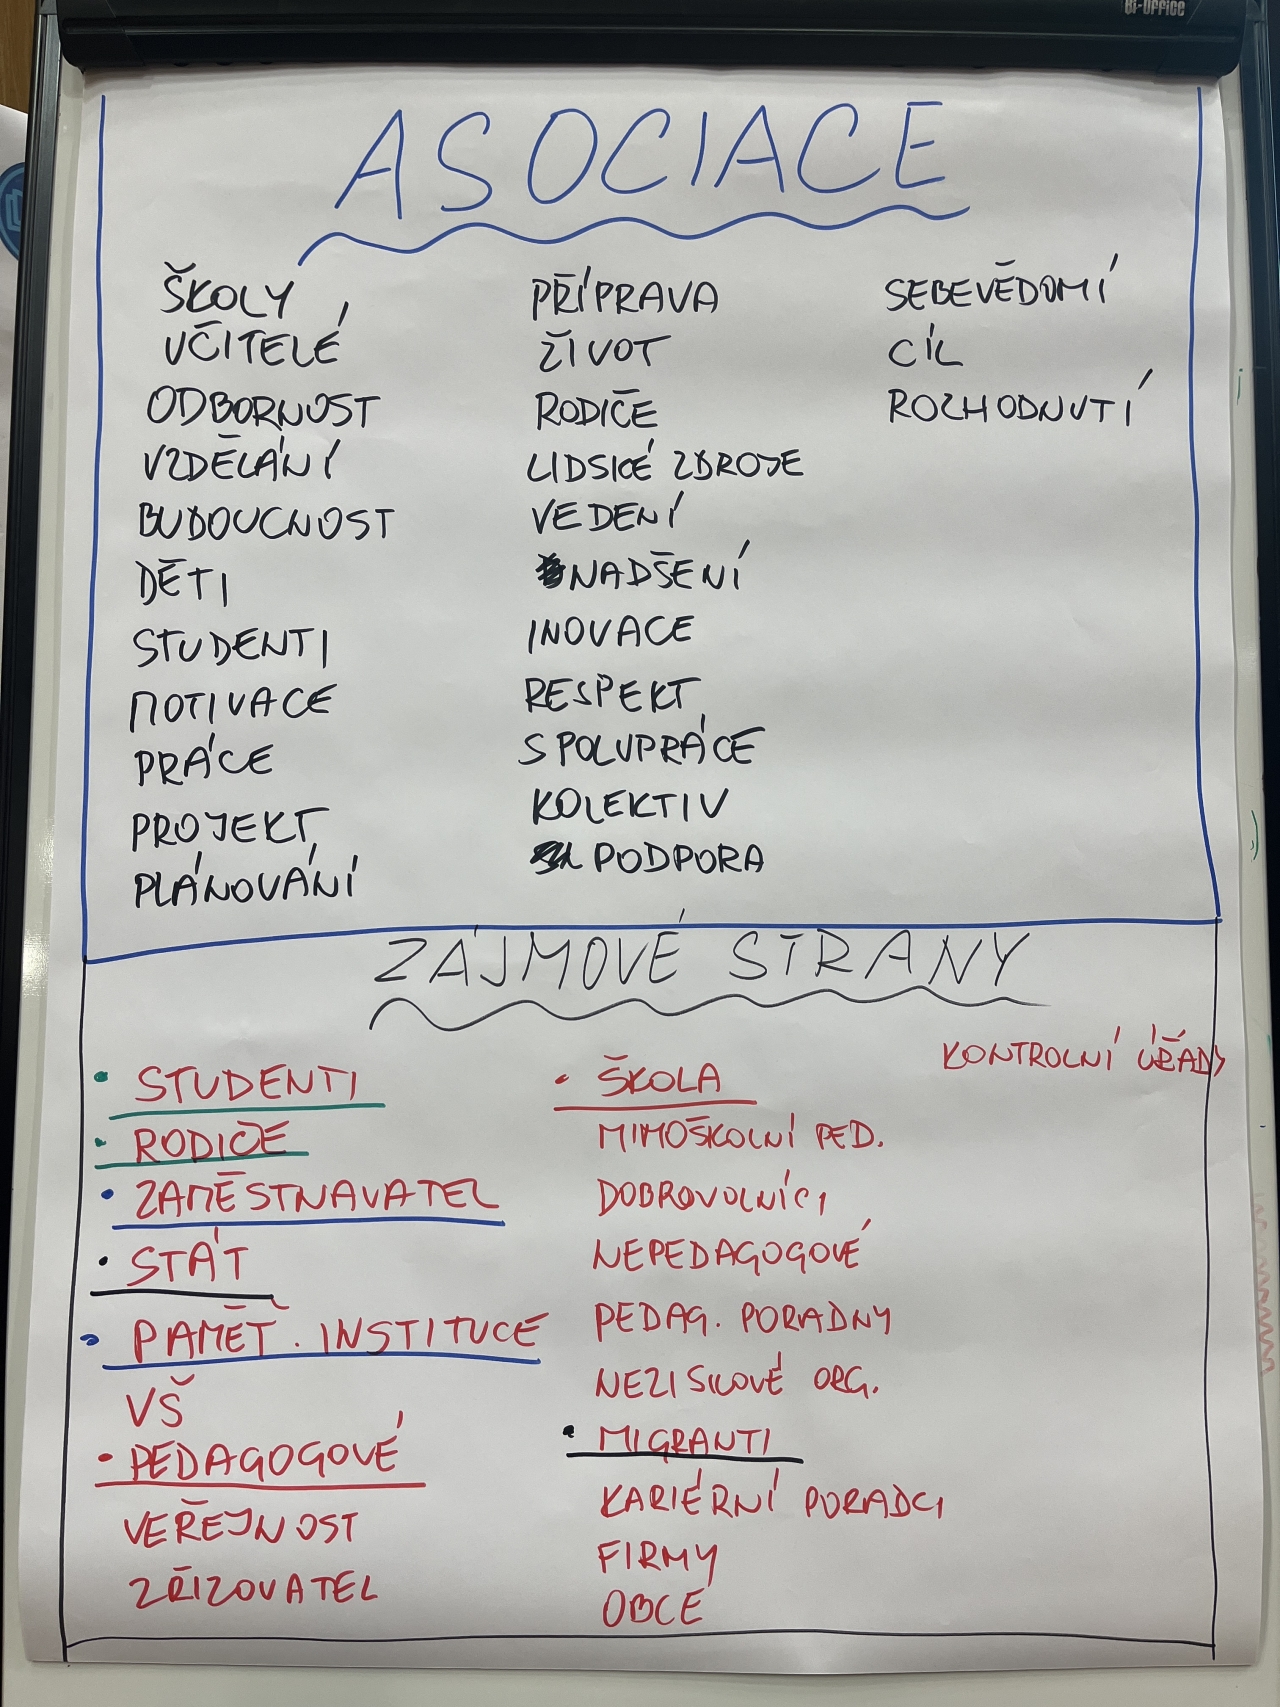 Bi-Office
ASOCIACE
ŠKOLY
UČITELÉ
ODBORNOST
VZDĚLÁNÍ
BUDOUCNOST
DĚTI
STUDENTI
MOTIVACE
PRÁCE
PROJEKT
PLÁNOVÁNÍ
PŘÍPRAVA
ŽIVOT
RODIČE
LIDSKÉ ZDROJE
VEDENÍ
NADŠENÍ
INOVACE
RESPEKT
SPOLUPRÁCE
KOLEKTIV
PODPORA
SEBEVĚDOMÍ
CÍL
ROZHODNUTÍ
ZÁJMOVÉ STRANY
• STUDENTI
• RODIČE
• ZAMĚSTNAVATEL
• STÁT
• PAMĚŤ. INSTITUCE
VŠ
• PEDAGOGOVÉ
VEŘEJNOST
ZŘIZOVATEL
• ŠKOLA
MIMOŠKOLNÍ PED.
DOBROVOLNÍCI
NEPEDAGOGOVÉ
PEDAG. PORADNY
NEZISKOVÉ ORG.
• MIGRANTI
KARIÉRNÍ PORADCI
FIRMY
OBCE
KONTROLNÍ ÚŘADY